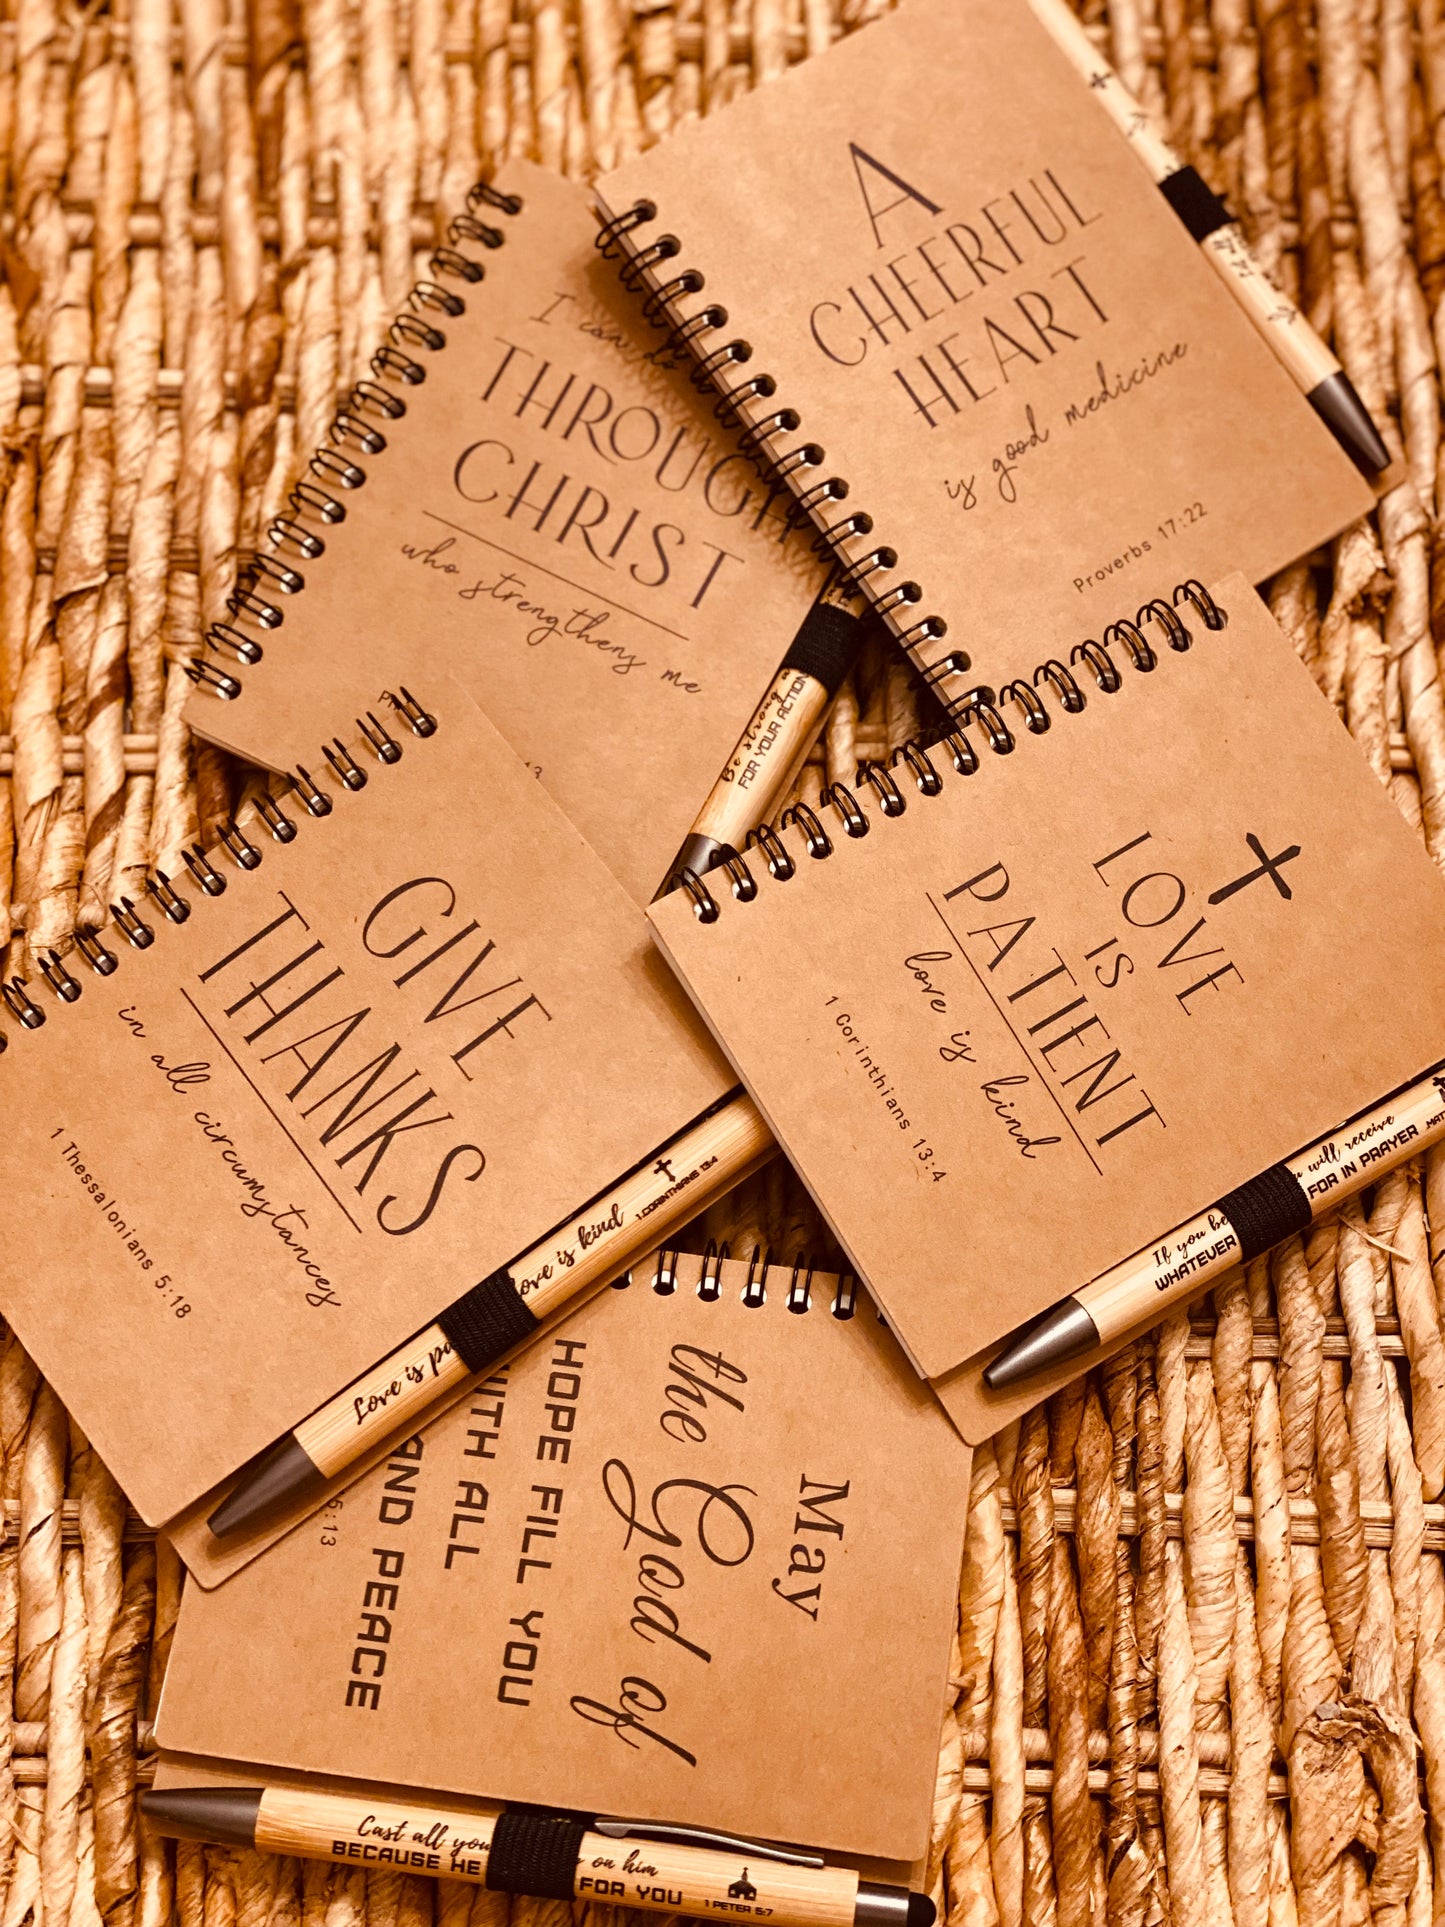 A
CHEERFUL
HEART
is good medicine
Proverbs 17:22
I can do
THROUGH
CHRIST
who strengthens me
13
Be strong
FOR YOUR ACTION
LOVE
IS
PATIENT
love is kind
1 Corinthians 13:4
If you be
WHATEVER
will receive
FOR IN PRAYER
GIVE
THANKS
in all circumstances
1 Thessalonians 5:18
Love is pa
love is kind
1.CORINTHIANS 13:4
May
the God of
HOPE FILL YOU
WITH ALL
AND PEACE
5:13
Cast all you
on him
BECAUSE HE
FOR YOU
1 PETER 5:7